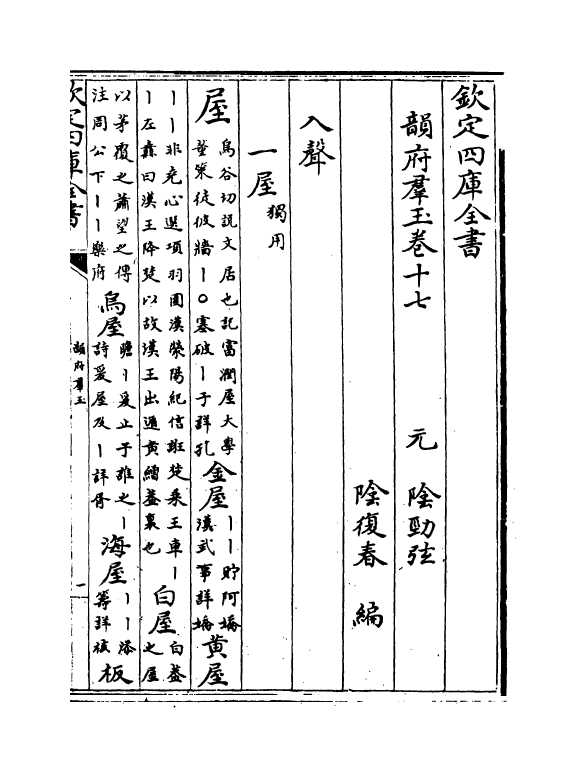 欽定四庫全書
韻府羣玉卷十七　元　陰勁弦
陰復春　編
入聲
一屋 獨用
屋 烏谷切說文居也記富潤屋大學 策徒彼牆丨○塞破丨子詳孔 金屋 丨丨貯阿嬌 漢武事詳嬌 黄屋
丨丨非堯心選項羽圍漢滎陽紀信誑楚乘王車丨 丨左纛曰漢王降楚以故漢王出遁黄繒葢裏也 白屋 白葢 之屋
以茅覆之蕭望之傳 注周公下丨丨樂府 烏屋 瞻丨爰止于誰之丨 詩爰屋及丨詳胥 海屋 丨丨添 籌詳核 板
欽定四庫全書
韻府羣玉
一